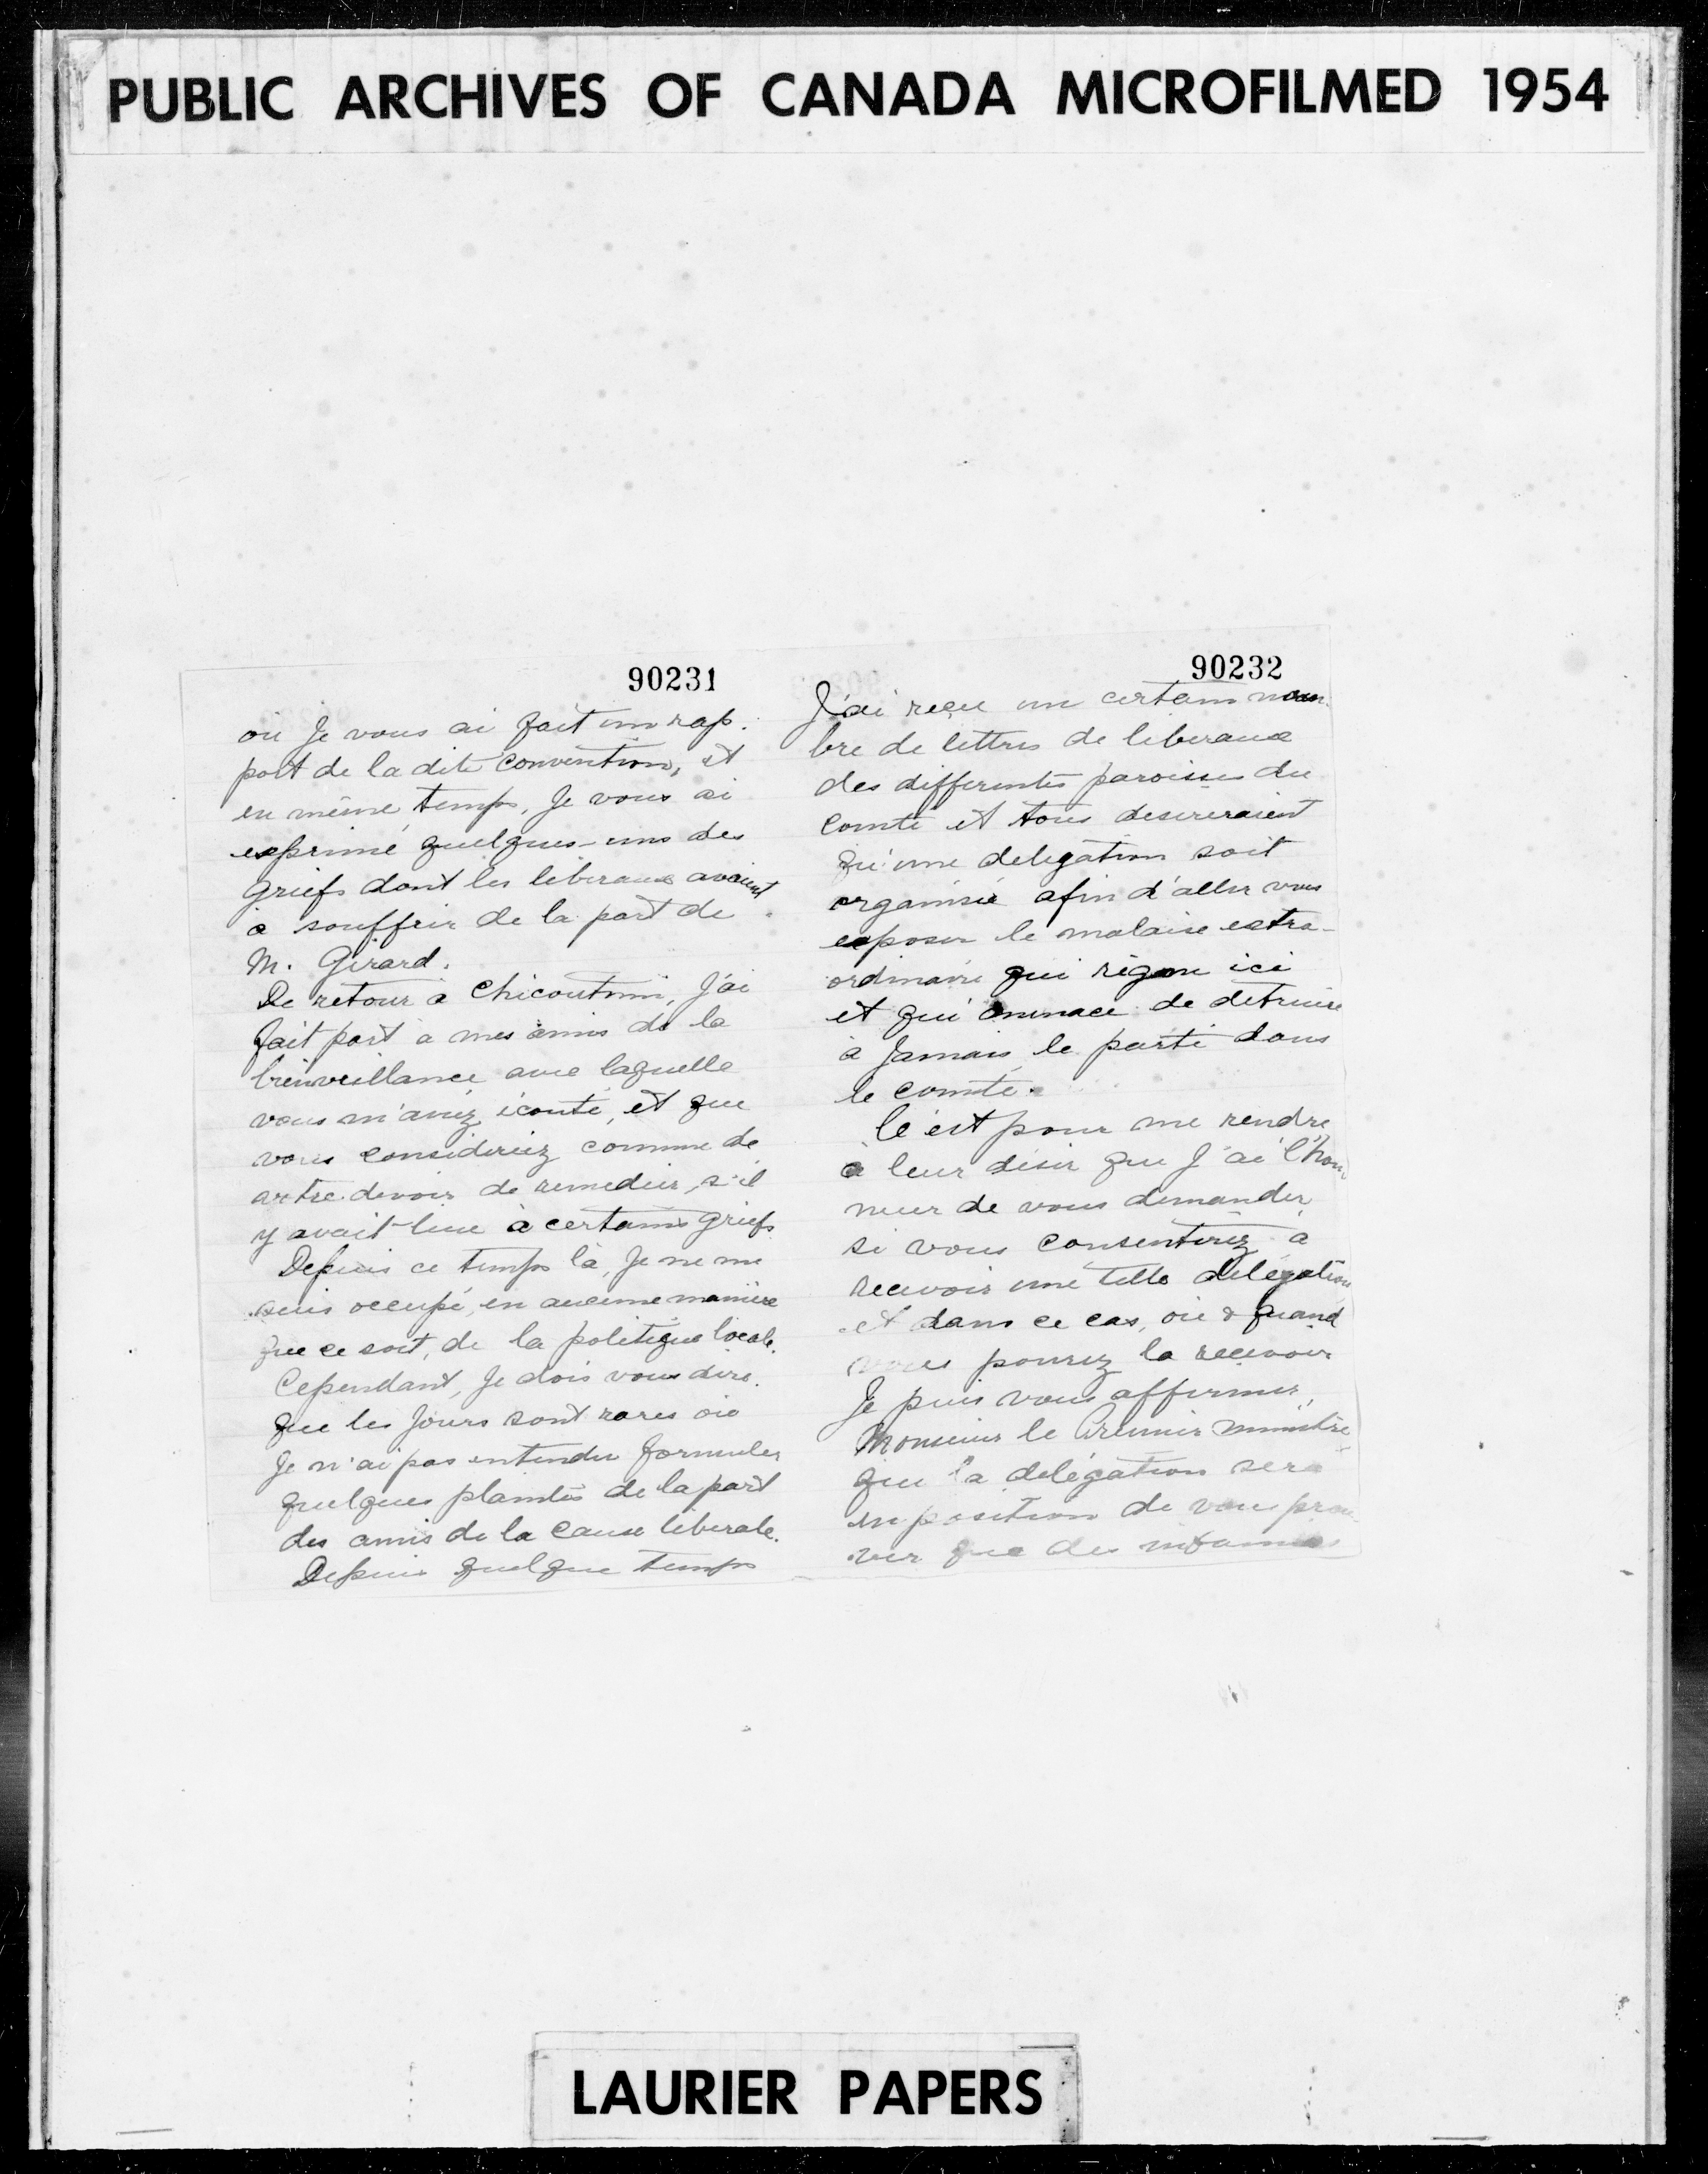 PUBLIC ARCHIVES OF CANADA MICROFILMED 1954
90231
où Je vous ai fait un rap-
port de la dite convention, et
en même temps, Je vous ai
exprimé quelques-uns des
griefs dont les liberaux avaient
à souffrir de la part de
M. Girard.
De retour à Chicoutimi, J'ai
fait part à mes amis de la
bienveillance avec laquelle
vous m'aviez écouté, et que
vous considériez comme de
votre devoir de remedier, s'il
y avait lieu à certains griefs
Depuis ce temps là, Je ne me
suis occupé, en aucune manière
que ce soit, de la politique locale.
Cependant, Je dois vous dire
que les Jours sont rares où
Je n'ai pas entendu formuler
quelques plaintes de la part
des amis de la cause liberale.
Depuis quelque temps
90232
J'ai reçu un certain nom-
bre de lettres de liberaux
des differentes paroisses du
comté et tous desireraient
qu'une delegation soit
organisée afin d'aller vous
exposer le malaise extra-
ordinaire qui règne ici
et qui menace de détruire
à Jamais le parti dans
le comté.
C'est pour me rendre
à leur désir que J'ai l'hon
neur de vous demander
si vous consentirez à
recevoir une telle délégation
et dans ce cas, où & quand
vous pourez la recevoir
Je puis vous affirmer,
Monsieur le Premier ministre
que la délégation sera
en position de vous prou-
ver que des
LAURIER PAPERS